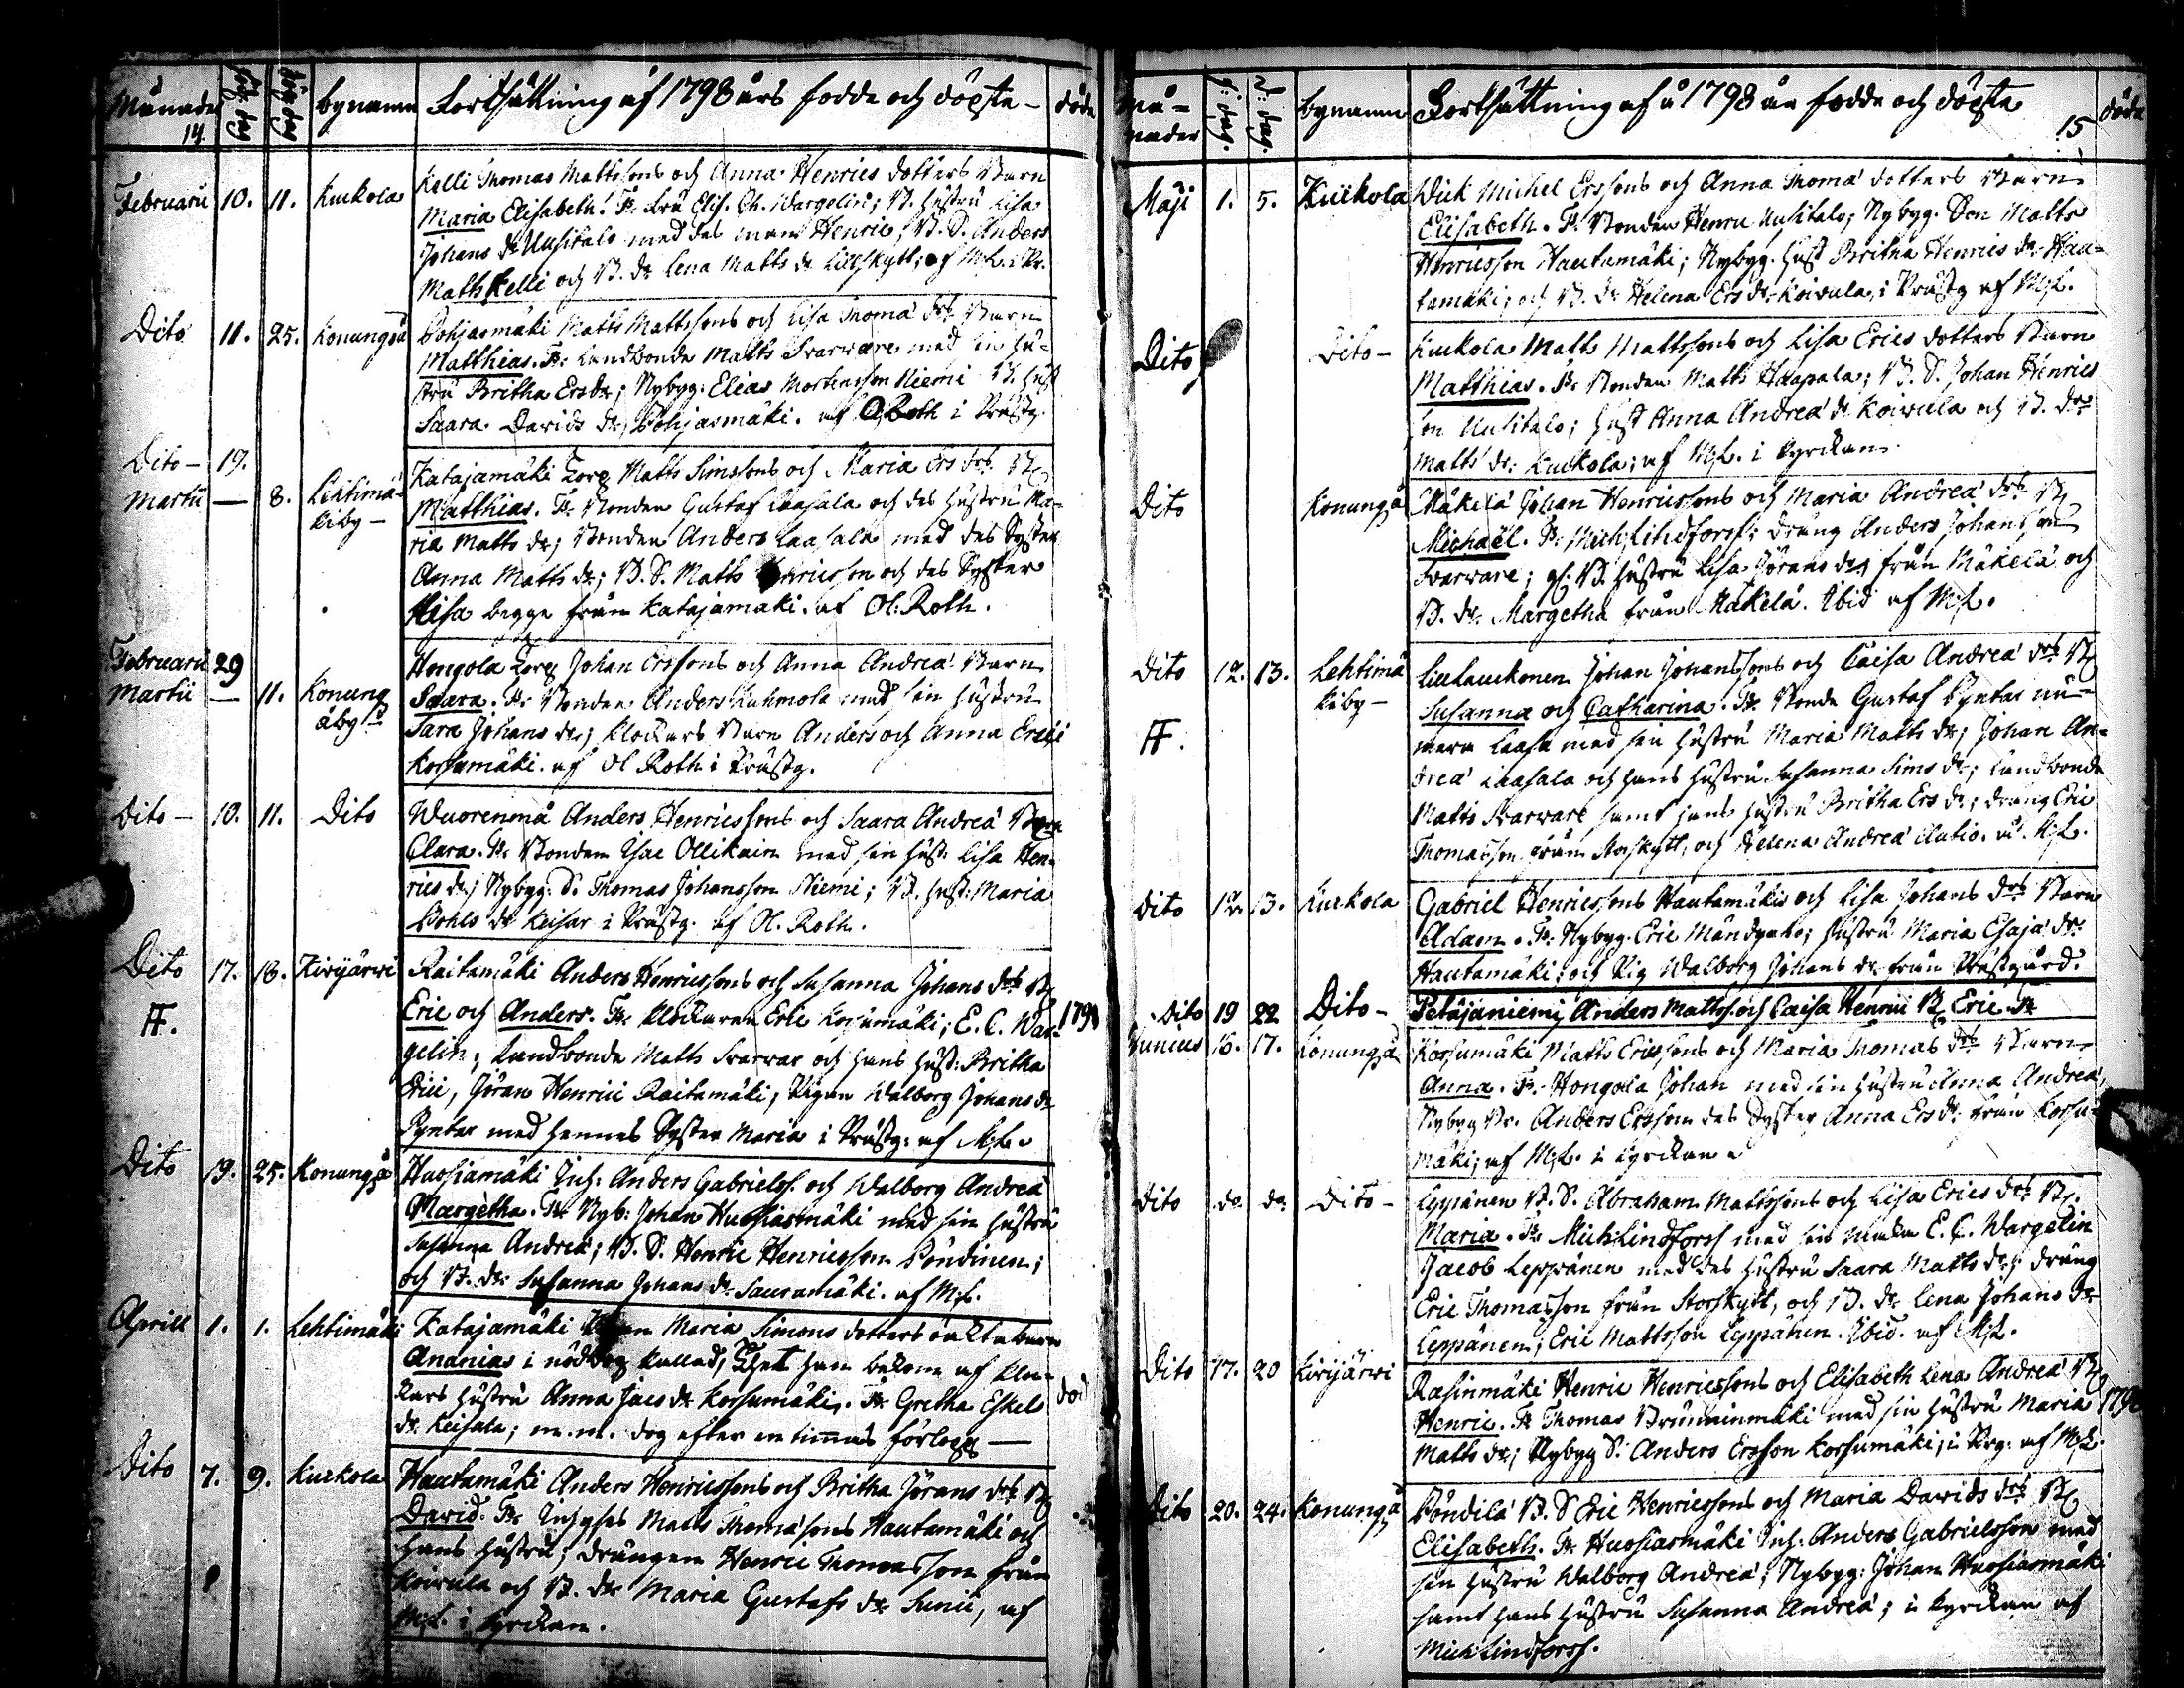 Månader
14.
föd. dag
döp. dag
bynamn
Fortsättning af 1798 års födde och döpte -
döde
Februarii 10. 11. Kuckola
Kelli Thomas Mattssons och Anna Henrics dotters Barn
Maria Elisabeth. Fr. Fru Elis. Ch. Wargelin; B. Hustru Lisa
Johans dr Uusitalo med des man Henric; B. S. Anders
Maths Kelli och B. dr Lena Matts dr Lillskytt; af M.L. i Pr.
Dito 11. 25. Konungså
Pohjasmäki Matts Mattssons och Lisa Thomæ drs Barn
Matthias. Fr. Landbonde Matts Svarvare med sin Hu-
stru Britha Ersdr; Nybyg: Elias Mortensson Niemi B. Hust
Saara Davids dr; Pohjasmäki. af O Roth i Prästg.
Dito - 19.
Martii — 8. Lehtimä-
kiby -
Katajamäki Torp Matts Simssons och Maria Ers drs B.
Matthias. Fr. Bonden Gustaf Laasala och des Hustru Ma-
ria Matts dr; Bonden Anders Laasala med des Syster
Anna Matts dr; B. S. Matts Henricsson och des Syster
Lisa begge från Katajamäki. af Ol. Roth.
Februarii 29
Martii — 11. Konung
åby
Hongola Torp Johan Erssons och Anna Andreæ Barn
Saara. Fr. Bonden Anders Kuhmola med sin Hustru
Sara Johans dr; Klockars Barn Anders och Anna Erici
Korsumäki. af Ol Roth i Prästg.
Dito - 10. 11. Dito
Wuorenmä Anders Henricssons och Saara Andreæ Barn
Clara. Fr. Bonden Isac Ollikain med sin Hust. Lisa Hen-
rics dr; Nybyg. S. Thomas Johansson Niemi; B. Hust: Maria
Pohls dr Keisar i Prästg. af Ol. Roth.
Dito 17. 18. Kivijärwi
FF.
Raitamäki Anders Henricssons och Susanna Johans drs B.
Eric och Anders. Fr. Klockaren Eric Korsumäki; E. C. War-
gelin; Landbonde Matts Svarvar och hans Hust: Britha
Erici, Jöran Henrici Raitamäki, Pigan Walborg Johans dr
Pyntar med hennes Syster Maria i Prästg: af M.L.
1798
Dito 19. 25. Konungså
Huosiamäki Inh: Anders Gabrielss. och Walborg Andreæ
Margetha. Fr. Nyb: Johan Huosiasmäki med sin Hustru
Susanna Andreæ; B. S. Henric Henricsson Pöndinen;
och B. dr Susanna Johans dr Sauramäki. af M.L.
Aprill 1. 1. Lehtimäki
Katajamäki Pigan Maria Simons dotters oäkta barn
Ananias i nöddop kallad, Thet han bekom af Kloc-
kars Hustru Anna Jacs dr Korsumäki. Fr. Gretha Eskel
dr Keisala; m.m. dog efter en timmas förlopp —
död
Dito 7. 9. Kuckola
Hautamäki Anders Henricssons och Britha Jörans drs B.
David. Fr. Inhyses Matts Thomæsons Hautamäki och
hans Hustru; Drängen Henric Thomasson från
Koivula och B. dr Maria Gustafs dr Sunii, af
M.L. i Kyrckan.
Må-
nader
f: dag.
d: dag.
bynamn
Fortsättning af å 1798 års födde och döpte
15
döde
Maji 1. 5. Kuckola
Wick Michel Erssons och Anna Thomæ dotters Barn
Elisabeth. Fr. Bonden Henric Uusitalo; Nybyg. Son Matts
Henricsson Hautamäki; Nybyg. Hust Britha Henrics dr Hau-
tamäki; och B. dr Helena Ersdr Koivula, i Prästg af M.L.
Dito Dito -
Kuckola Matts Mattssons och Lisa Erics dotters Barn
Matthias. Fr. Bonden Matts Haapala; B. S. Johan Henrics
son Uusitalo; Hust Anna Andreæ dr Koivula och B. dr
Matts dr: Kuckola; af M.L. i Kyrckan.
Dito Konungså
Mäkelä Johan Henricssons och Maria Andreæ drs B.
Michaël. Fr. Mich; Lindforss; dräng Anders Johansson
Svarvare; gl: B. Hustru Lisa Jörans dr från Mäkelä och
B. dr. Margetha från Mäkelä. Ibid af M.L.
Dito 12. 13. Lehtimä
kiby -
FF.
Lillaukonen Johan Johanssons och Caisa Andreæ drs B.
Susanna och Catharina. Fr. Bonde Gustaf Pyntar nu-
mera Laasa med sin Hustru Maria Matts dr; Johan An-
dreæ Laasala och hans Hustru Susanna Sims dr; Landbonde
Matts Svarvare samt hans Hustru Britha Ers dr; dräng Eric
Thomasson från Storskytt, och Helena Andreæ Autio. af M.L.
Dito 12. 13. Kuckola
Gabriel Henricssons Hautamäkis och Lisa Johans drs Barn
Adam. Fr. Nybyg. Eric Mändynen; Hustru Maria Esajæ dr.
Hautamäki; och Pig Walborg Johans dr från Prästgård.
Dito 19 22 Dito -
Petäjäniemi Anders Matts. och Caisa Henrici B. Eric. Fr
Junius 16. 17. Konungså
Korsumäki Matts Ericssons och Maria Thomas drs Barn
Anna. Fr. Hongola Johan med sin Hustru Anna Andreæ,
Nybyg Br. Anders Ersson des Syster Anna Ers dr från Korsu-
mäki; af M.L. i Kyrckan.
Dito do. do. Dito -
Leppänen B. S. Abraham Mattssons och Lisa Erics drs B.
Maria. Fr. Mich: Lindforss med sin Maka E. C. Wargelin
Jacob Leppänen med des Hustru Saara Matts dr; dräng
Eric Thomasson från Storskytt, och B. dr. Lena Johans dr
Leppänen; Eric Mattsson Leppänen. Ibid. af M.L.
Dito 17. 20 Kivijärwi
Rasinmäki Henric Henricssons och Elisabeth Lena Andreæ B.
Henric. Fr Thomas Brunninmäki med sin Hustru Maria
Matts dr; Nybyg S. Anders Ersson Korsumäki; i Prg: af M.L.
Dito 20. 24. Konungså
Pöndilä B. S Eric Henricssons och Maria Davids drs B.
Elisabeth. Fr. Huosiasmäki Inh: Anders Gabrielsson med
sin Hustru Walborg Andreæ; Nybyg: Johan Huosiasmäki
samt hans Hustru Susanna Andreæ; i Kyrckan af
Mich Lindforss.